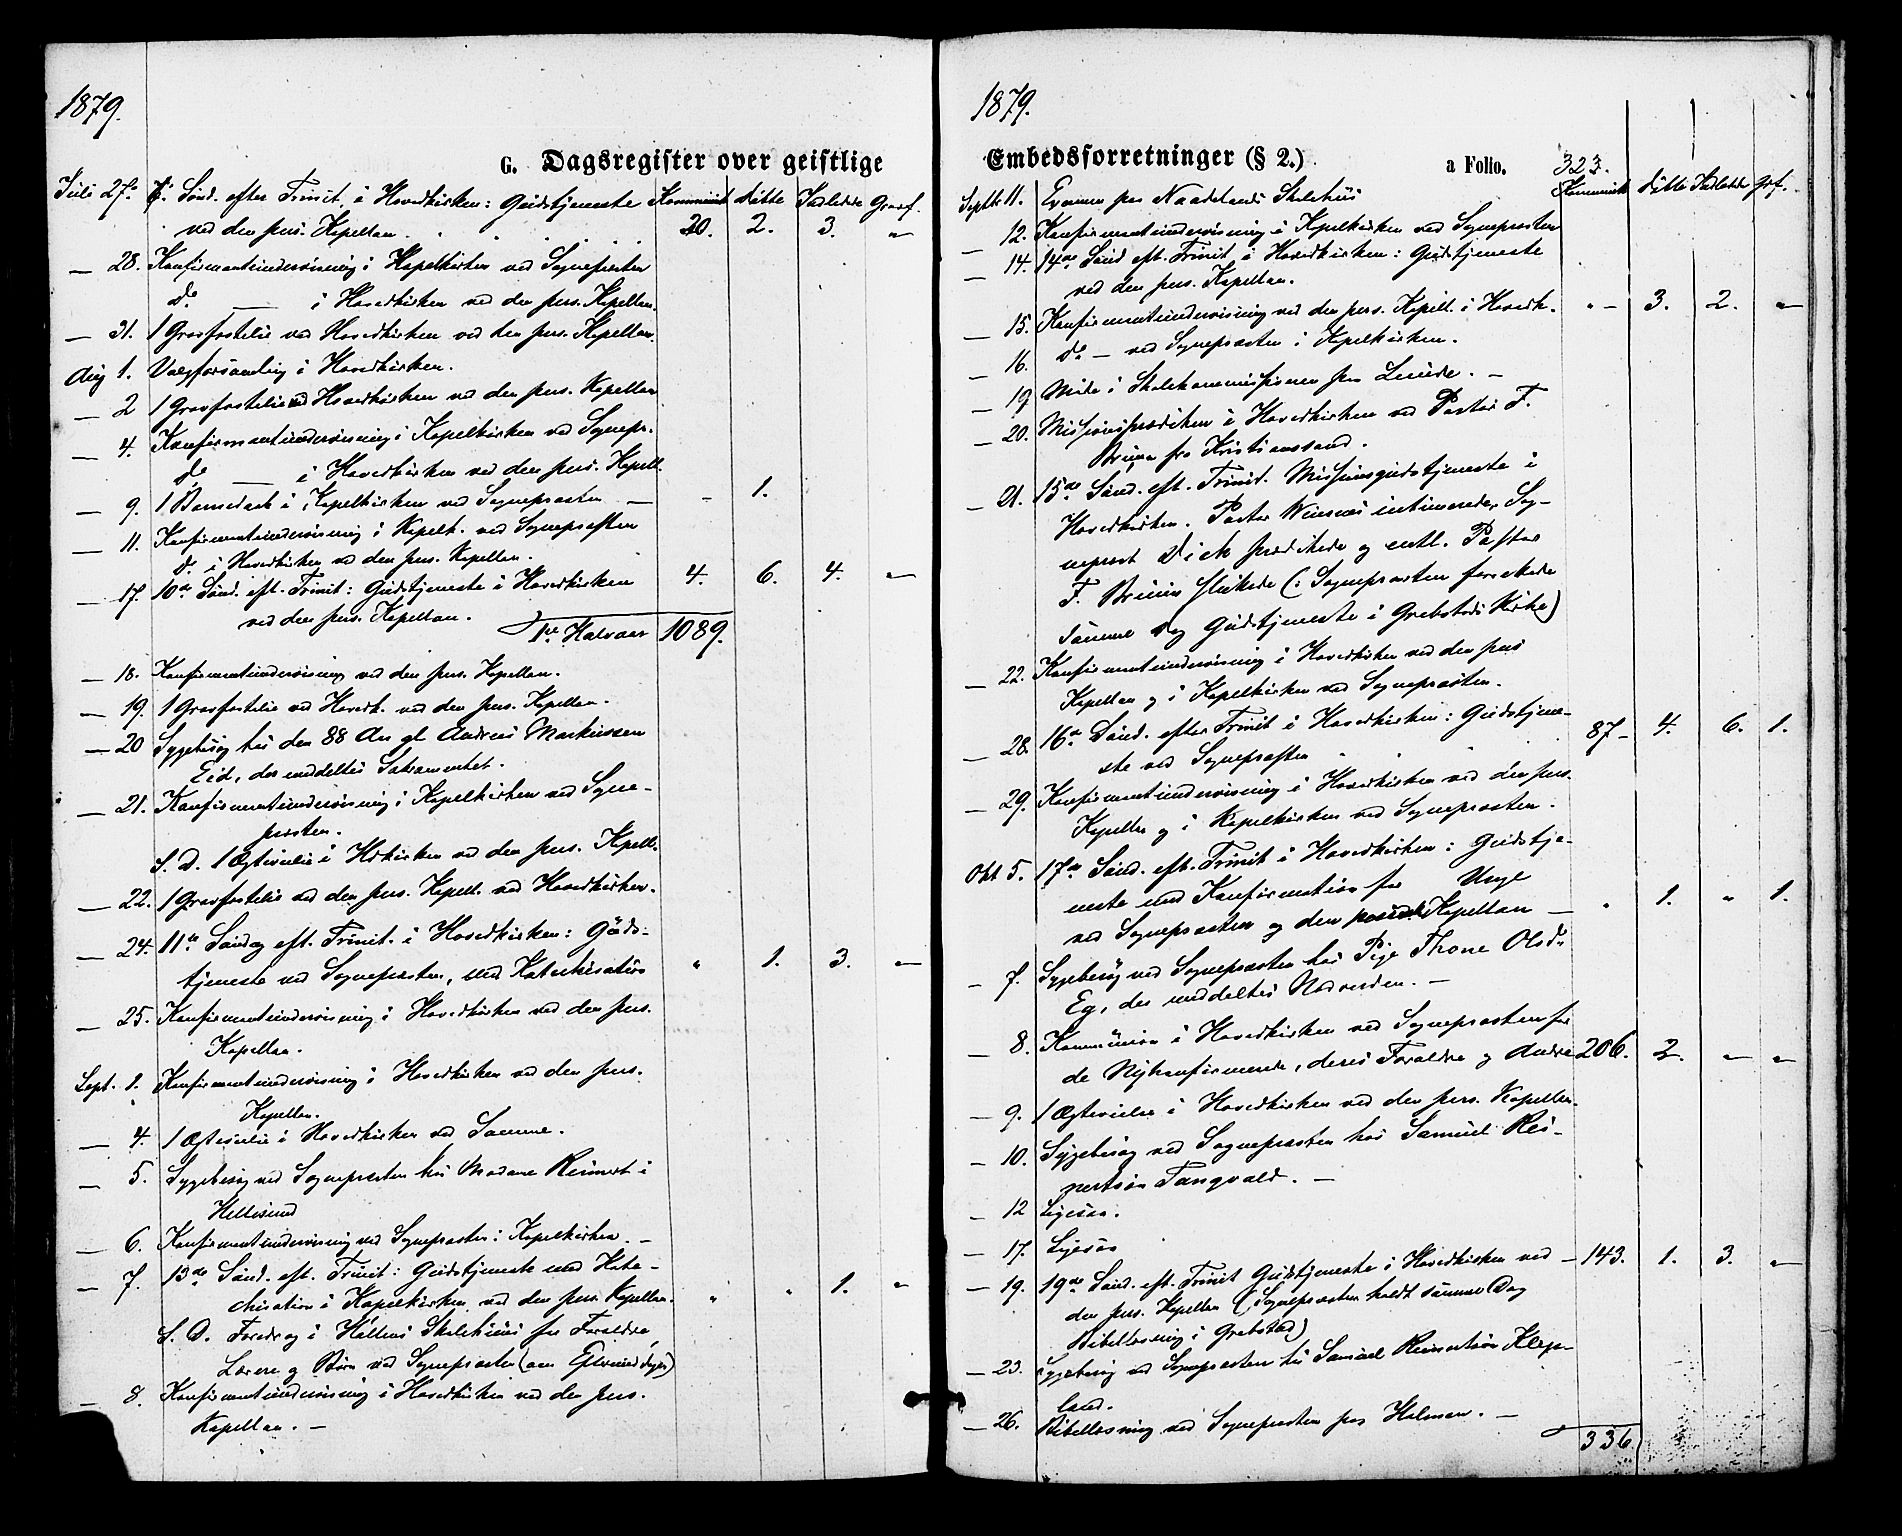 1879.
G. Dagsregister over geistlige
Juli 27de Sönd. efter Trinit. i Hovedkirken: Gudstjeneste Kommunik Döbte Indledte Gravf.
ved den pers. Kapellan. 20. 2. 3. "
— 28. Konfirmantundervisning i Kapelkirken ved Sognepresten
do — i Hovedkirken ved den pers. Kapellan.
— 31. 1 Gravfæstelse ved Hovedkirken ved den pers. Kapellan.
Aug 1. Valgforsamling i Hovedkirken.
— 2 1 Gravfæstelse ved Hovedkirken ved den pers. Kapellan
— 4. Konfirmantundervisning i Kapelkirken ved Sognepr.
do — i Hovedkirken ved den pers. Kapell.
— 9. 1 Barnedaab i Kapelkirken ved Sognepræsten — - 1.
— 11. Konfirmantundervisning i Kapelk. ved Sognepresten
do i Hovedkirken ved den pers. Kapellan.
— 17. 10de Sönd. eft. Trinit: Gudstjeneste i Hovedkirken 4. 6. 4. "
ved den pers. Kapellan.
1ste Halvaar 1089.
— 18. Konfirmantundervisning ved den pers. Kapellan.
— 19. 1 Gravfæstelse ved Hovedk. ved den pers. Kapellan.
— 20 Sygebesög hos den 88 Aar gl. Andreas Markussen
Eid, der meddeltes Sakramentet.
— 21. Konfirmantundervisning i Kapelkirken ved Sogne-
presten.
S. D. 1 Ægtevielse i Hdkirken ved den pers. Kapell.
— 22. 1 Gravfæstelse ved den pers. Kapell. ved Hovedkirken.
— 24. 11te Söndag eft. Trinit. i Hovedkirken: Guds-
tjeneste ved Sognepresten, med Katechisation " 1. 3. "
— 25. Konfirmantundervisning i Hovedkirken ved den pers.
Kapellan.
Sept. 1. Konfirmantundervisning i Hovedkirken ved den pers.
Kapellan.
— 4. 1 Ægtevielse i Hovedkirken ved Samme.
— 5. Sygebesög ved Sognepresten hos Madame Reinert i
Hellesund
— 6. Konfirmantundervisning ved Sognepresten i Kapelkirken. —
— 7. 13de Sönd. eft. Trinit: Gudstjeneste med Kate-
chisation i Kapelkirken ved den pers. Kapellan. " " 1. "
S. D. Foredrag i Höllens Skolehuus for Forældre,
Lærere og Börn ved Sognepresten (om Eftermiddagen)
— 8. Konfirmantundervisning i Hovedkirken ved den pers.
Kapellan. —
1879.
Embedsforretninger (§ 2.) a Folio. 323.
Kommunik Döbte Indledte Grf.
Septb 11. Examen paa Naadelands Skolehuus
— 12. Konfirmantundervisning i Kapelkirken ved Sognepresten
— 14. 14de Sönd. eft. Trinit i Hovedkirken: Gudstjeneste
ved den pers. Kapellan. " 3. 2. "
— 15. Konfirmantundervisning ved den pers. Kapell. i Hovedk.
— 16. do — ved Sognepresten i Kapelkirken.
— 19 Möde i Skolekommissionen paa Lunde. —
— 20. Missionsprædiken i Hovedkirken ved Pastor F.
Bruun fra Kristianssand.
— 21. 15de Sönd. eft. Trinit. Missionsgudstjeneste i
Hovedkirken. Pastor Winsnes intimerede, Sog-
neprest Dick prædikede og cand. Pastor
F. Bruun sluttede (: Sognepresten forrettede
samme Dag Gudstjeneste i Grebstads Kirke)
— 22. Konfirmantundervisning i Hovedkirken ved den pers
Kapellan og i Kapelkirken ved Sognepresten.
— 28. 16de Sönd. efter Trinit i Hovedkirken: Gudstjene-
ste ved Sognepresten 87 4. 6. 1.
— 29. Konfirmantundervisning i Hovedkirken ved den pers.
Kapellan og i Kapelkirken ved Sognepresten.
Okt 5. 17de Sönd. eft. Trinit i Hovedkirken: Gudstje-
neste med Konfirmation for Unge
ved Sognepresten og den personl. Kapellan — " 1. " 1.
— 7. Sygebesög ved Sognepresten hos Pige Thone Olsdr
Eg, der meddeltes Nadverden. —
— 8. Kommunion i Hovedkirken ved Sognepresten for
de Nykonfirmerede, deres Forældre og Andre 206. 2. " "
— 9. 1 Ægtevielse i Hovedkirken ved den pers. Kapellan.
— 10. Sygebesög ved Sognepresten hos Samuel Rei-
nertsön Tangvald. —
— 12 Ligesaa.
— 17. Ligesaa
— 19. 19de Sönd. eft. Trinit Gudstjeneste i Hovedkirken ved — 143. 1. 3. "
den pers. Kapellan (Sognepresten holdt samme Dag
Bibellæsning i Grebstad)
— 23. Sygebesög ved Sognepresten hos Samuel Reinertsön Klep-
land.
— 26. Bibellæsning ved Sognepresten paa Holmen. —
336